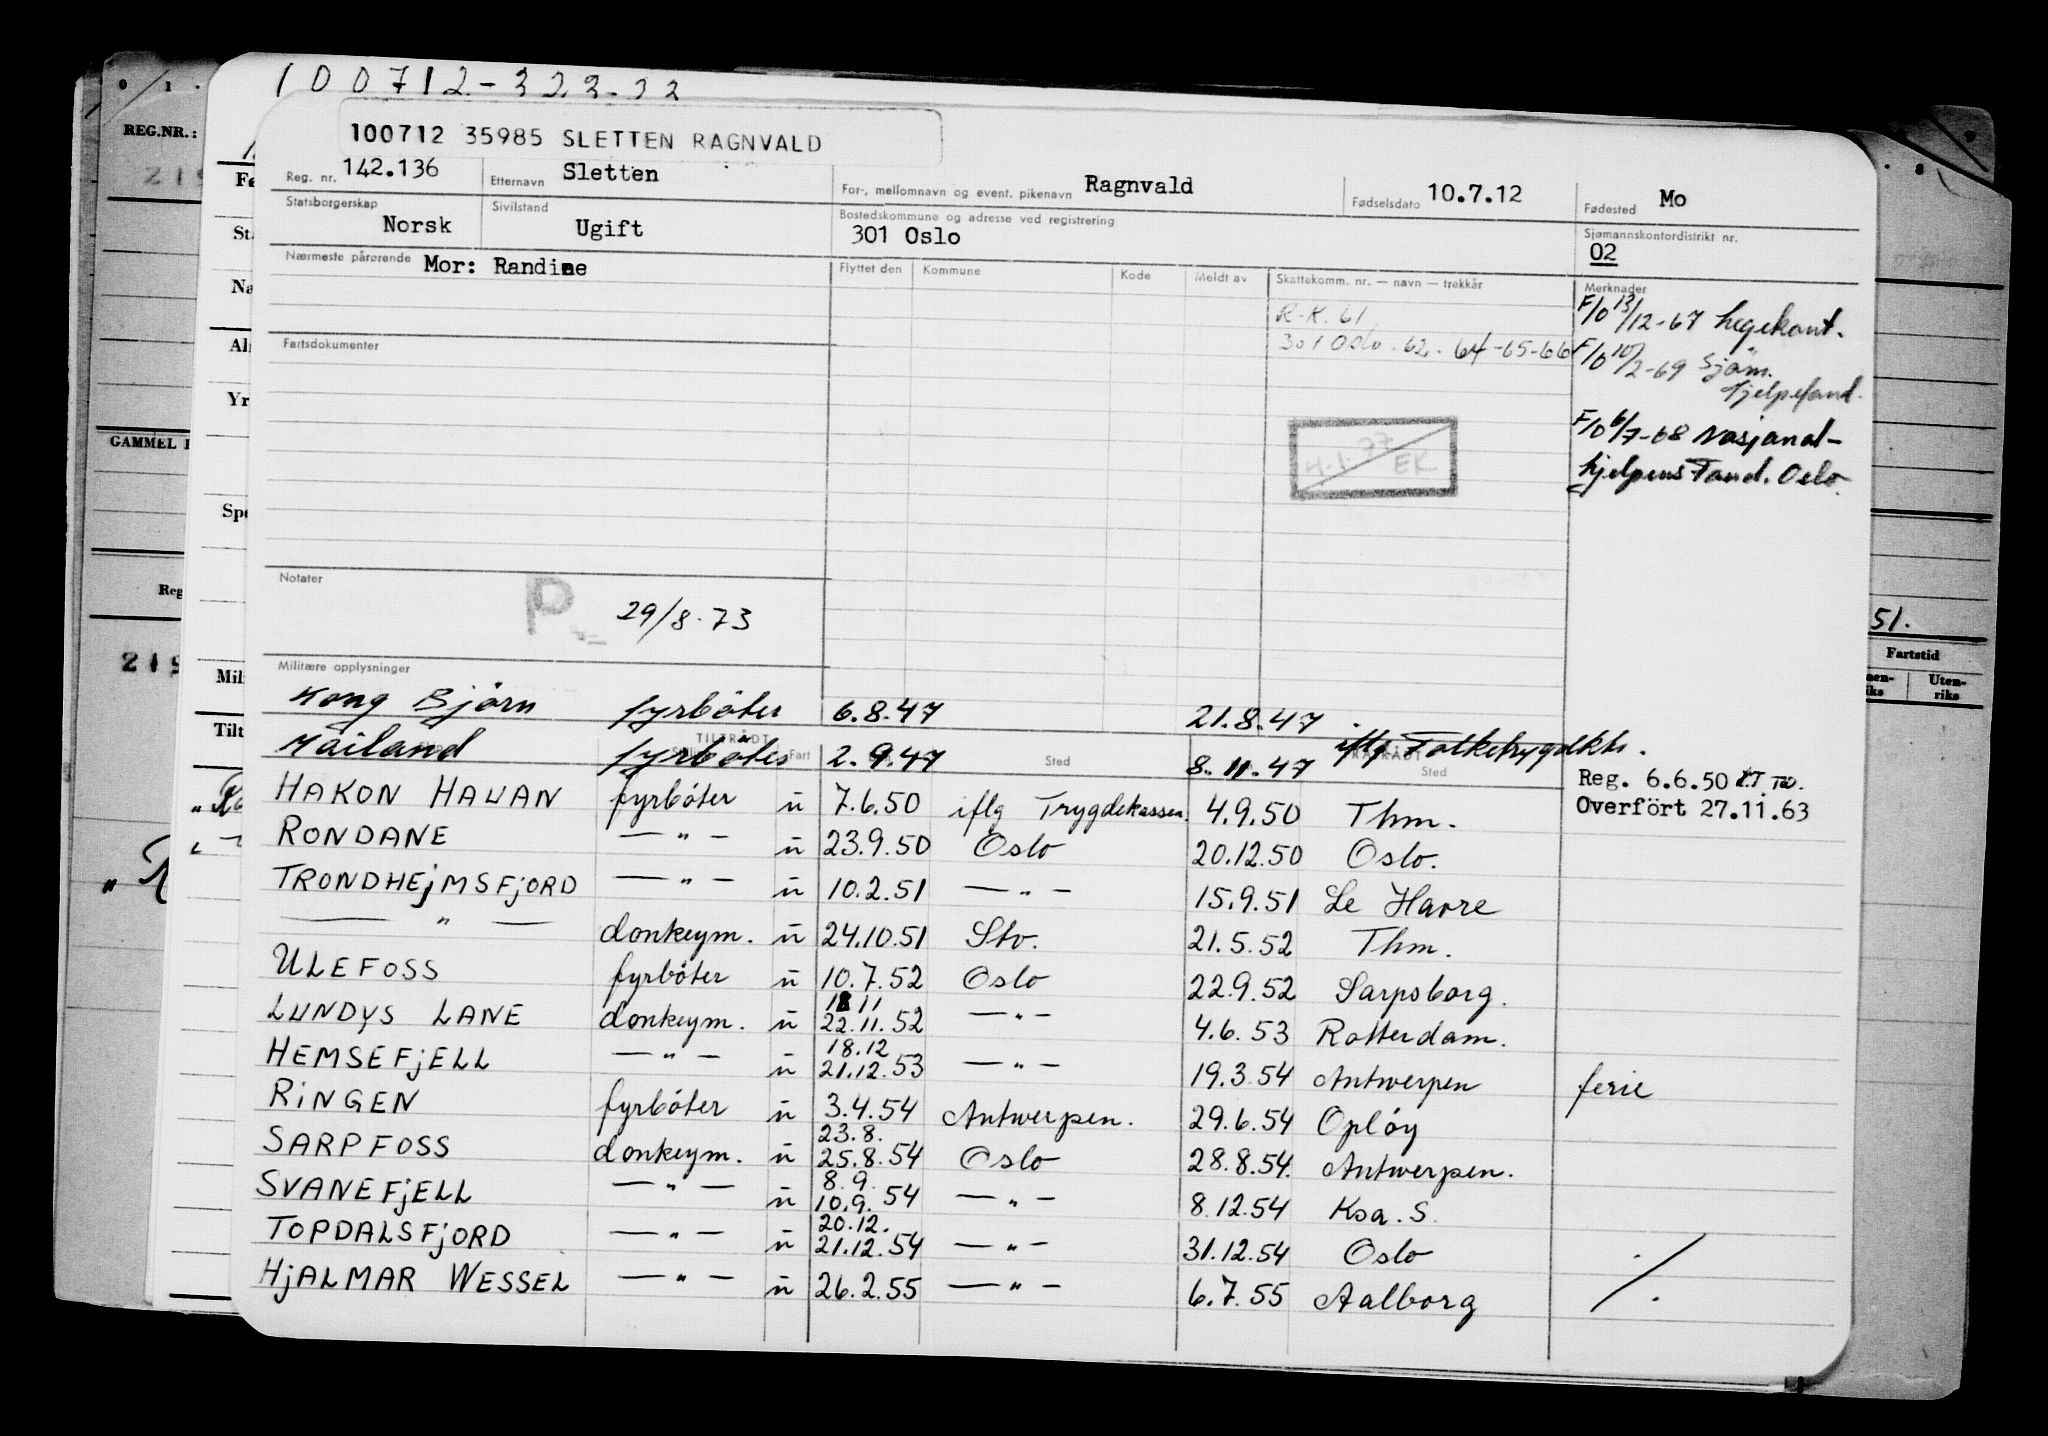 100712-323-32
100712 35985 SLETTEN RAGNVALD
Reg. nr. 142.136 Etternavn Sletten For-, mellomnavn og event. pikenavn Ragnvald Fødselsdato 10.7.12 Fødested Mo
Statsborgerskap Norsk Sivilstand Ugift Bostedskommune og adresse ved registrering 301 Oslo Sjømannskontordistrikt nr. 02
Nærmeste pårørende Mor: Randine Flyttet den Kommune Kode Meldt av Skattekomm. nr. — navn — trekkår Merknader
R.K. 61
301 Oslo. 62. 64-65-66
F/O 13/12-67 hegekont.
F/O 10/2-69 Sjöm.
hjelpefond.
F/O 6/7-68 Nasjonal-
hjelpens Fond. Oslo.
Fartsdokumenter
4-1-77 EK
Notater
P 29/8-73
Militære opplysninger
Kong Björn fyrböter 6.8.47 21.8.47
TILTRÅDT
Mailand fyrböter Fart 2.9.47 Sted 8.11.47 iflg Folketrygdktr. Sted
Reg. 6.6.50
Overfört 27.11.63
HAKON HAUAN fyrböter u 7.6.50 iflg Trygdekassen. 4.9.50 Thm.
RONDANE — " — u 23.9.50 Oslo 20.12.50 Oslo.
TRONDHEjMSFjORD — " — u 10.2.51 — " — 15.9.51 Le Havre
— " — donkeym. u 24.10.51 Stv. 21.5.52 Thm.
ULEFOSS fyrböter u 10.7.52 Oslo 22.9.52 Sarpsborg.
LUNDYS LANE donkeym. u 18 11 22.11.52 — " — 4.6.53 Rotterdam.
HEMSEFjELL — " — u 18.12 21.12.53 — " — 19.3.54 Antwerpen ferie
RiNGEN fyrböter u 3.4.54 Antwerpen. 29.6.54 Oplöy
SARPFOSS donkeym. u 23.8. 25.8.54 Oslo 28.8.54. Antwerpen.
SVANEFjELL — " — u 8.9. 10.9.54 — " — 8.12.54 Ksa. S.
TOPDALSFjORD — " — u 20.12. 21.12.54 — " — 31.12.54 Oslo
HjALMAR WESSEL — " — u 26.2.55 — " — 6.7.55 Aalborg ./.
REG.NR.:
219
GAMMEL
Reg
219
51.
Fartstid
Uten-
riks